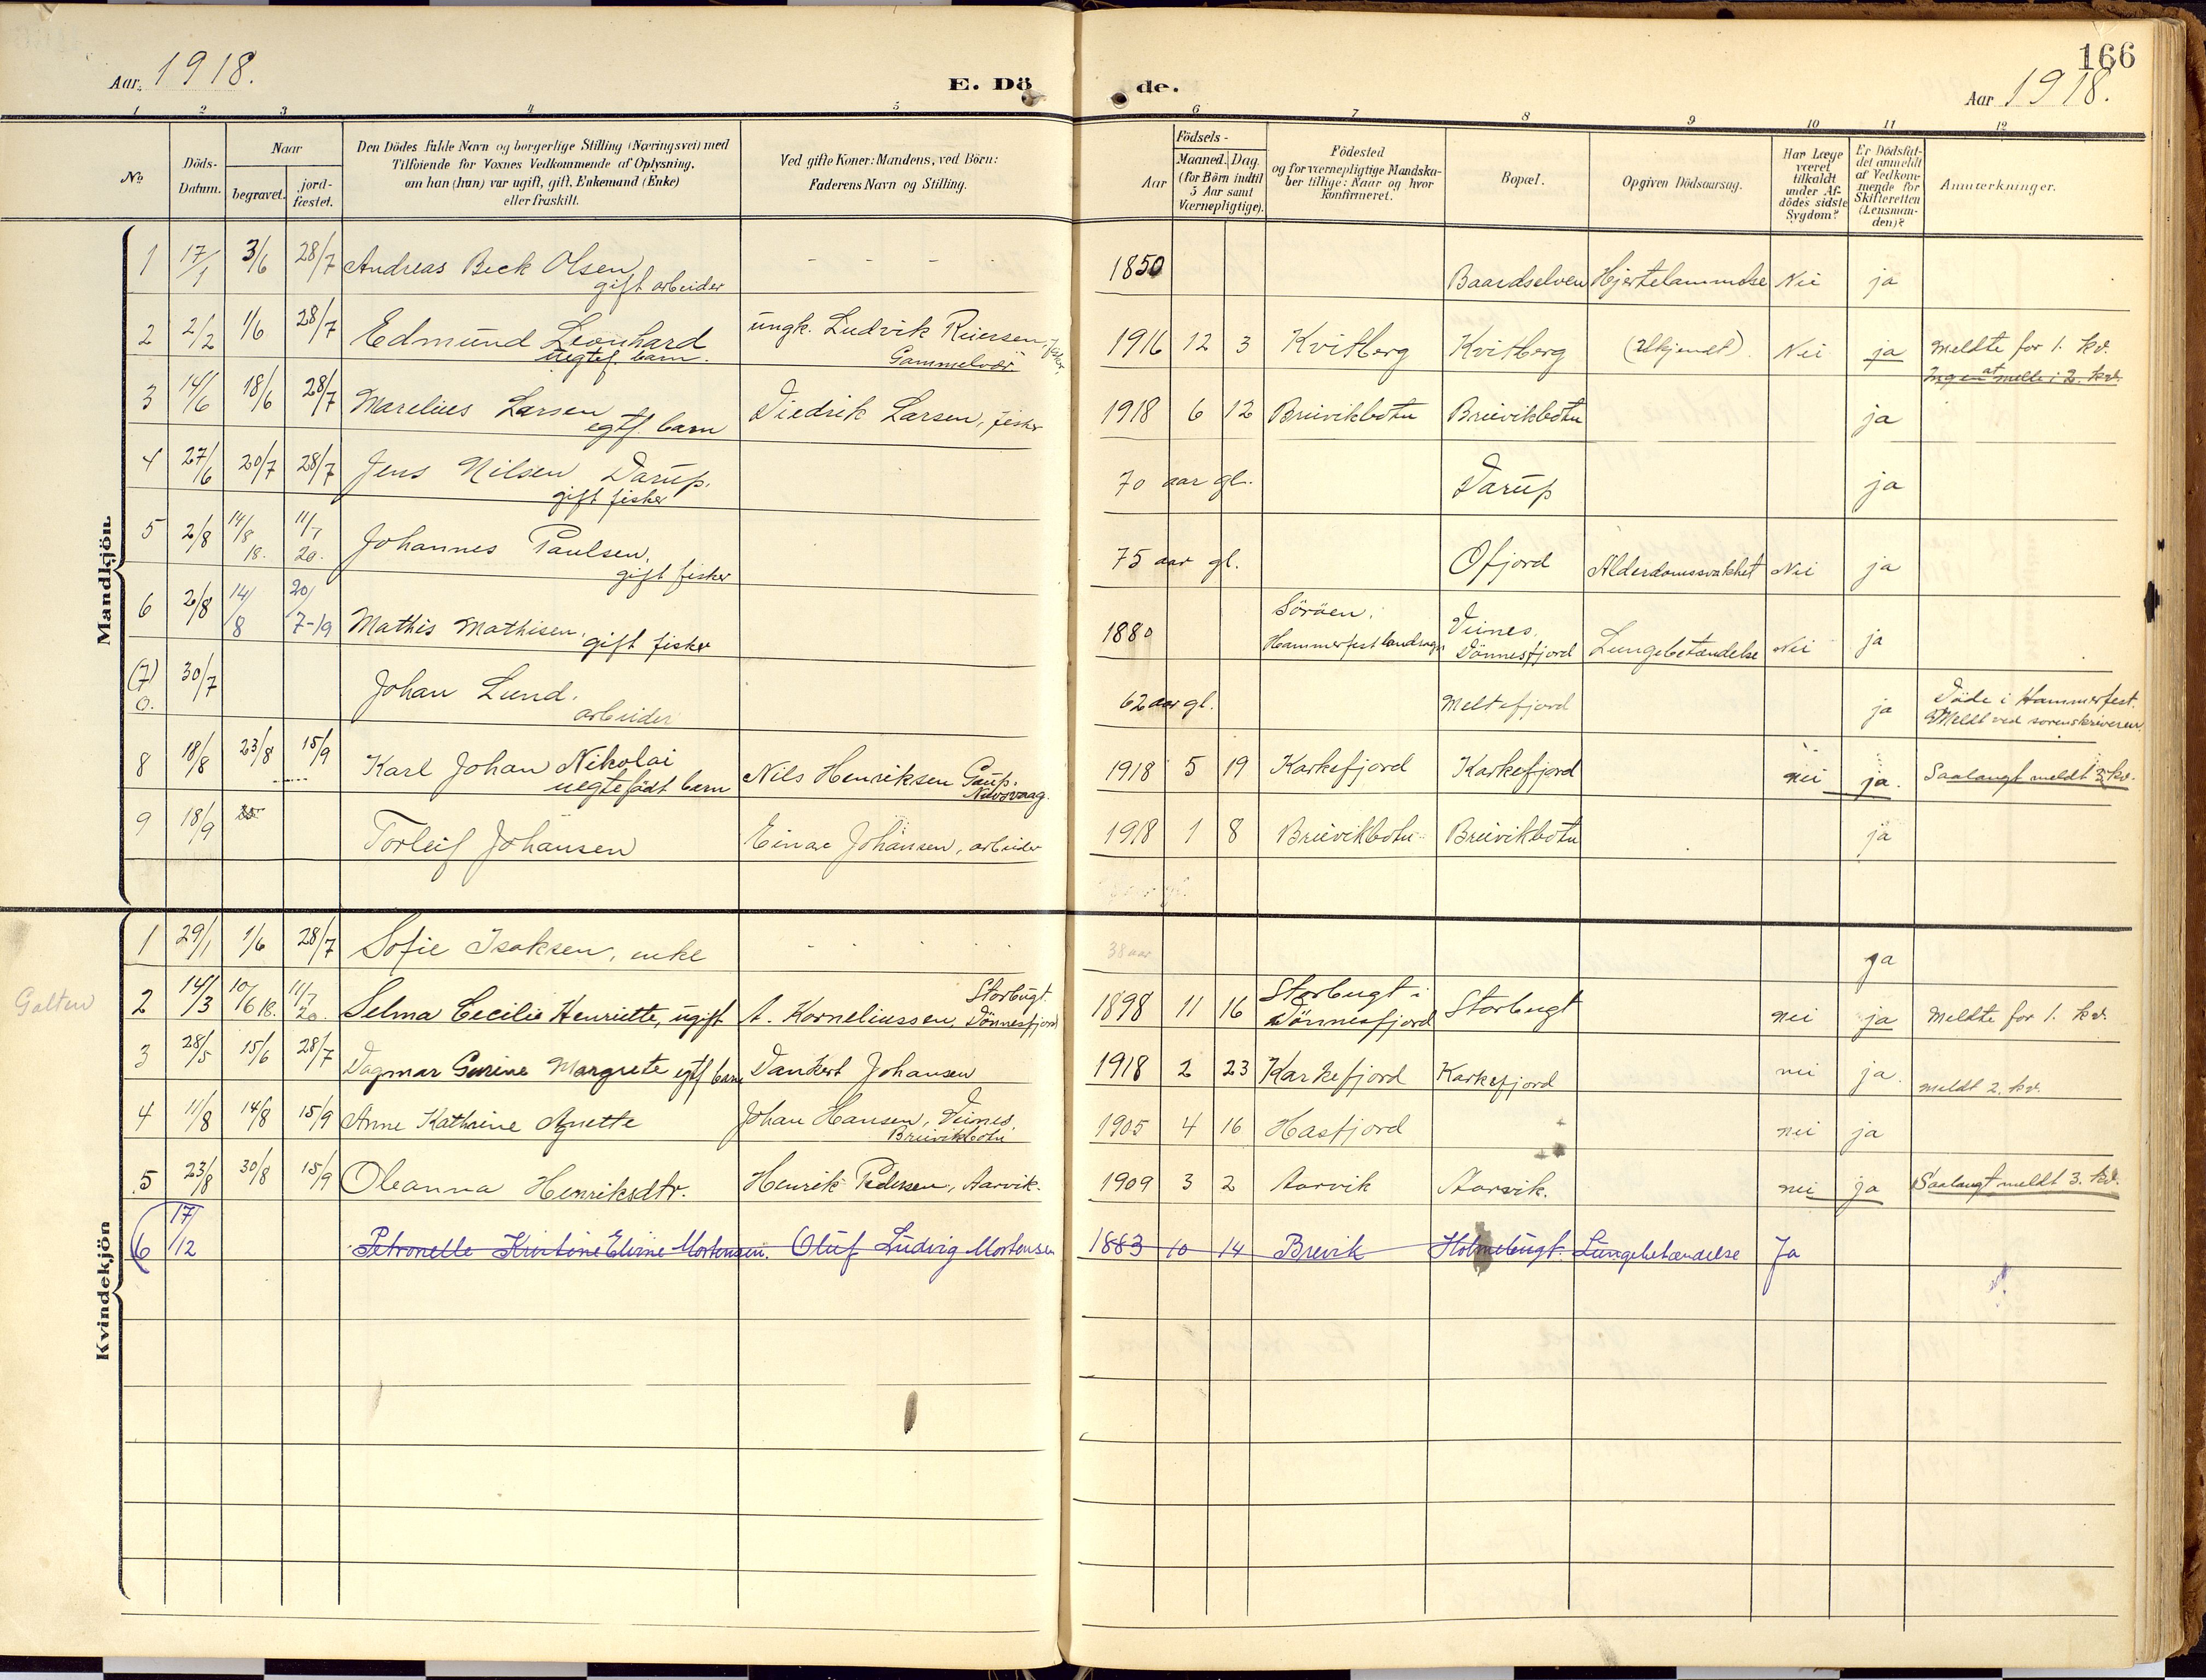 166
Aar. 1918. E. Dö de. Aar 1918.
1 2 3 4 5 6 7 8 9 10 11 12
No
Döds-Datum.
Naar
begravet.
jord-fæstet.
Den Dödes fulde Navn og borgerlige Stilling (Næringsvei) med
Tilføiende for Voxnes Vedkommende af Oplysning,
om han (hun) var ugift, gift, Enkemand (Enke)
eller fraskilt.
Ved gifte Koner: Mandens, ved Börn:
Faderens Navn og Stilling.
Födsels-
Aar
Maaned. Dag.
(for Börn indtil
5 Aar samt
Værnepligtige).
Födested
og for værnepligtige Mandska-
ber tillige: Naar og hvor
konfirmeret.
Bopæl.
Opgiven Dödsaarsag.
Har Læge
været
tilkaldt
under Af-
dödes sidste
Sygdom?
Er Dödsfal-
det anmeldt
af Vedkom-
mende for
Skifteretten
(Lensman-
den)?
Anmærkninger.
Mandkjön.
1 17/1 3/6 28/7 Andreas Beck Olsen - - - 1850 Baardselven Hjertelammelse Nei ja
gift arbeider
2 2/2 1/6 28/7 Edmund Leonhard ungk. Ludvik Reiersen, fisker, 1916 12 3 Kvitberg Kvitberg (Ukjendt) Nei ja Meldte for 1. kv.
uegtef. barn. Gammelvär Ingen at melde i 2. kv.
3 14/6 18/6 28/7 Marelius Larsen Diedrik Larsen, fisker 1918 6 12 Breivikbotn Breivikbotn ja
egtf. barn
4 27/6 20/7 28/7 Jens Nilsen Darup. 70 aar gl. Darup ja
gift fisker
5 2/8 14/8 18. 11/7 20. Johannes Paulsen, 75 aar gl. Ofjord Alderdomssvakhet Nei ja
gift fisker
6 2/8 14/8 20/7-19 Mathis Mathisen, gift fisker 1880 Söröen, Hammerfest landsogn Veines, Dönnesfjord Lungebetændelse Nei ja
(7) 0. 30/7 Johan Lund. 62 aar gl. Meltefjord ja Döde i Hammerfest.
arbeider Meldt ved sorenskriveren.
8 18/8 23/8 15/9 Karl Johan Nikolai Nils Henriksen Gaup. 1918 5 19 Karkefjord Karkefjord nei ja. Saalangt meldt 3. kv.
uegtefödt barn
9 18/9 Torleif Johansen Einar Johansen, arbeider 1918 1 8 Breivikbotn Breivikbotn ja
Kvindekjön
1 29/1 1/6 28/7 Sofie Isaksen, enke 38 aar ja
Galten 2 14/3 10/6 18. 11/7 20. Selma Cecilie Henriette, ugift A. Korneliussen, Storbugt. Dönnesfjord 1898 11 16 Storbugt i Dönnesfjord Storbugt nei ja Meldte for 1. kv.
3 28/5 15/6 28/7 Dagmar Gurine Margrete egtf barn Dankert Johansen 1918 2 23 Karkefjord Karkefjord nei ja. meldt 2. kv.
4 11/8 14/8 15/9 Anne Kathrine Agnette Johan Hansen, Veines, Breivikbotn 1905 4 16 Hasfjord nei ja
5 23/8 30/8 15/9 Oleanna Henriksdtr. Henrik Pedersen, Aarvik. 1909 3 2 Aarvik Aarvik. nei ja Saalangt meldt 3. kv.
6 17/12 Petronelle Kristine Elvine Mortensen. Oluf Ludvig Mortensen 1883 10 14 Brevik Holmebugt. Lungebetændelse Ja